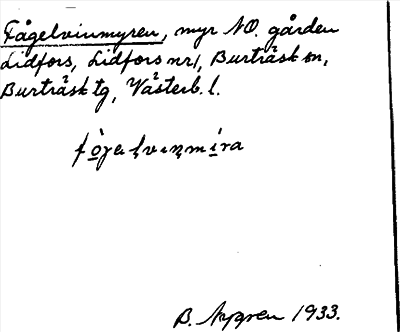 Fågelvinmyren, myr NO. gården
Lidfors, Lidfors nr 1, Burträsk sn,
Burträsk tg, Västerb. l.
fò̱γεl̥vιn̥mí̱ra
B. Nygren 1933.